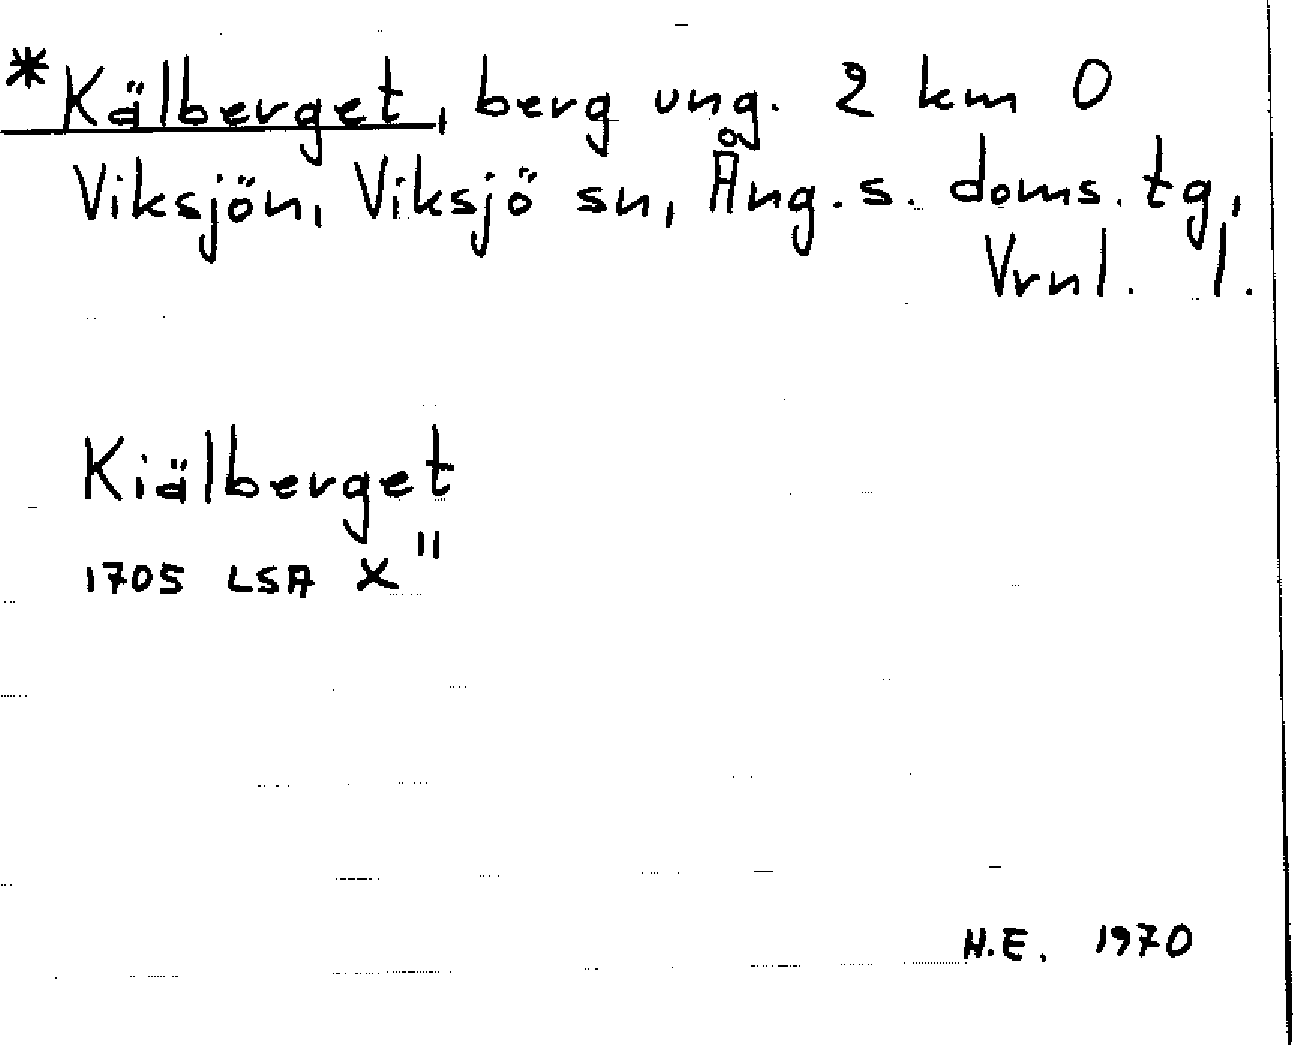 *Kälberget, berg ung. 2 km O
Viksjön, Viksjö sn, Ång. s. doms. tg,
Vrnl. l.
Kiälberget
1705 LSA X"
H.E. 1970